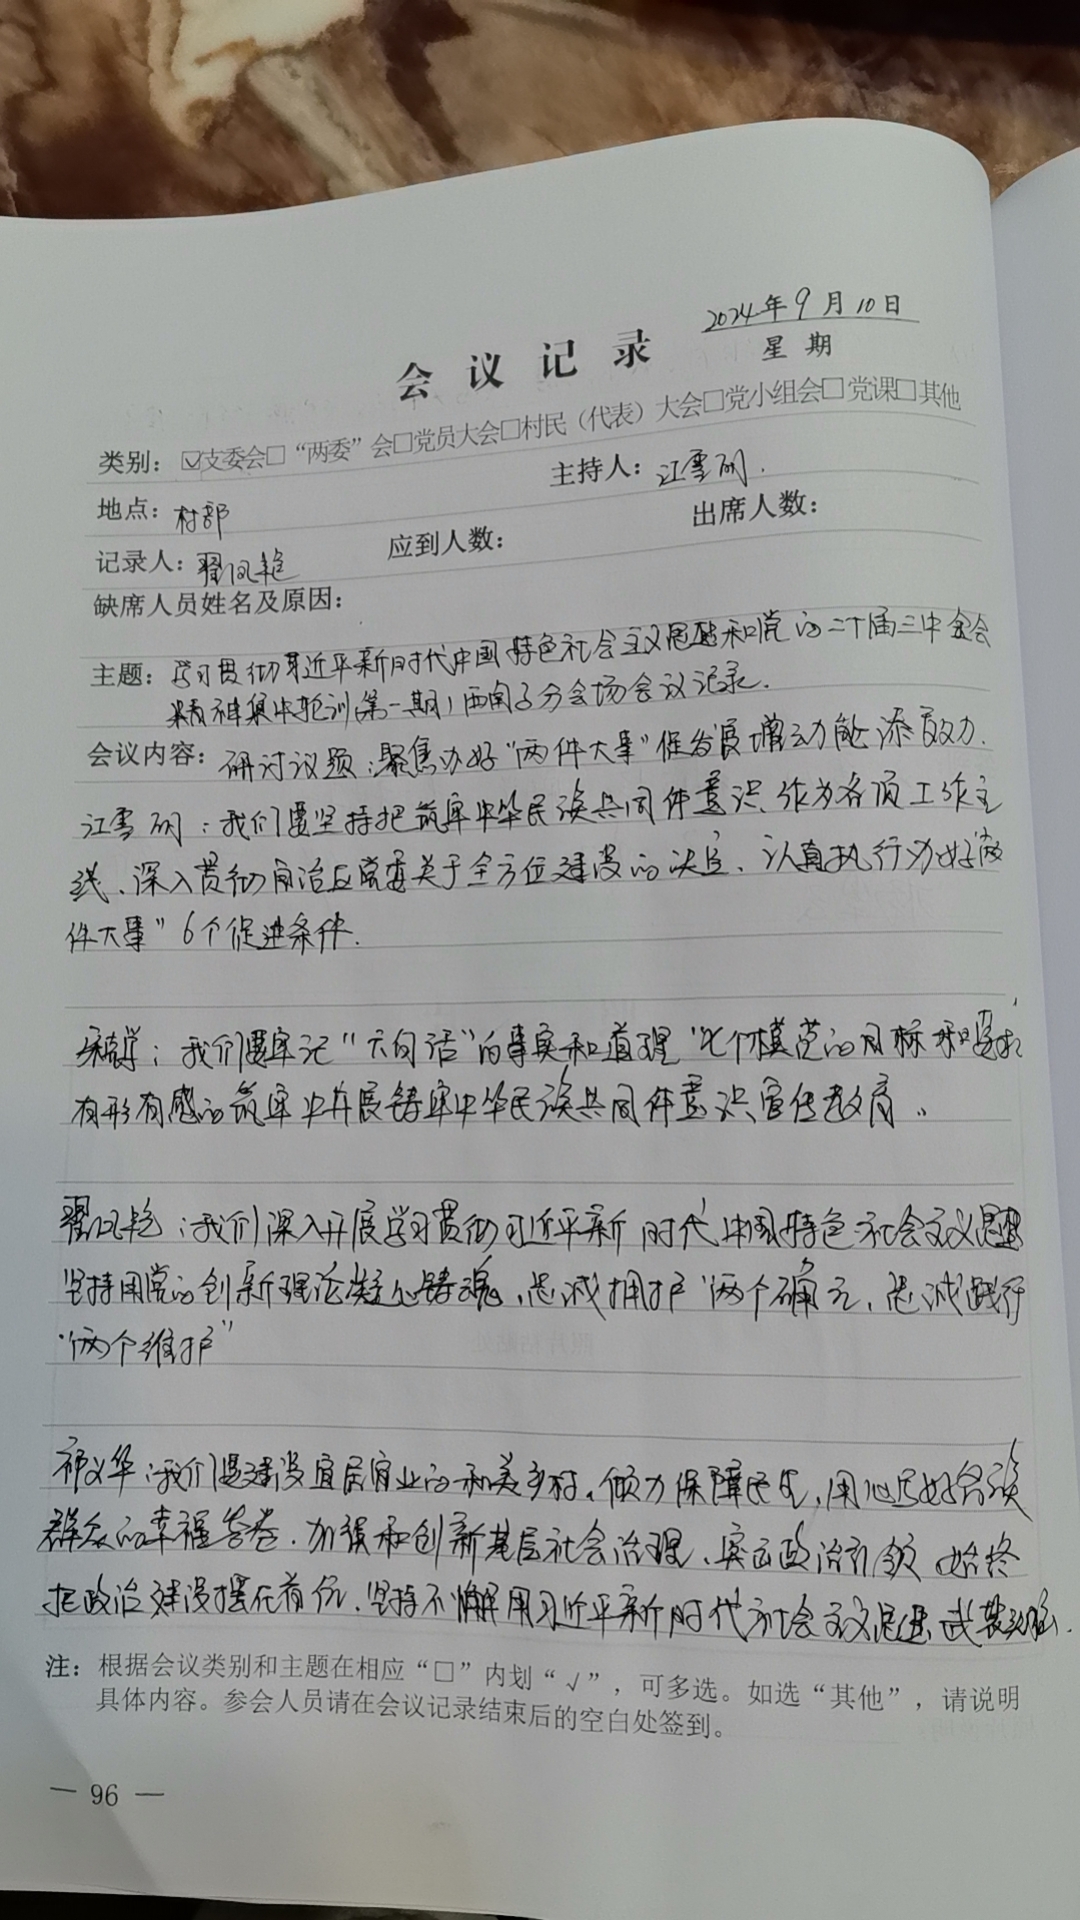 2024年9月10日
会议记录
星期
类别：☑支委会□“两委”会□党员大会□村民（代表）大会□党小组会□党课□其他
地点：村部 主持人：江雪
记录人：翟凤艳 应到人数： 出席人数：
缺席人员姓名及原因：
主题：学习贯彻习近平新时代中国特色社会主义思想和党的二十届三中全会
精神集中轮训（第一期）分会场会议记录.
会议内容：研讨议题：聚焦办好“两件大事”促发展增动能添效力.
江雪：我们要坚持把筑牢中华民族共同体意识作为各项工作主
线、深入贯彻自治区党委关于全方位建设的决定、认真执行办好“两
件大事”6个促进条件.
：我们要牢记“六句话”的事实和道理“七个模范的目标和
有形有感的筑牢开展铸牢中华民族共同体意识宣传教育。
翟凤艳：我们深入开展学习贯彻习近平新时代中国特色社会主义思想
坚持用党的创新理论凝心铸魂，忠诚拥护“两个确立，忠诚践行
“两个维护”
祁义华：我们要建设宜居宜业的和美乡村。倾力保障民生，用心各族
群众的幸福答卷.加强和创新基层社会治理、突出政治引领 始终
把政治建设摆在首位.坚持不懈用习近平新时代社会主义思想武装头脑.
注：根据会议类别和主题在相应“□”内划“√”，可多选。如选“其他”，请说明
具体内容。参会人员请在会议记录结束后的空白处签到。
— 96 —